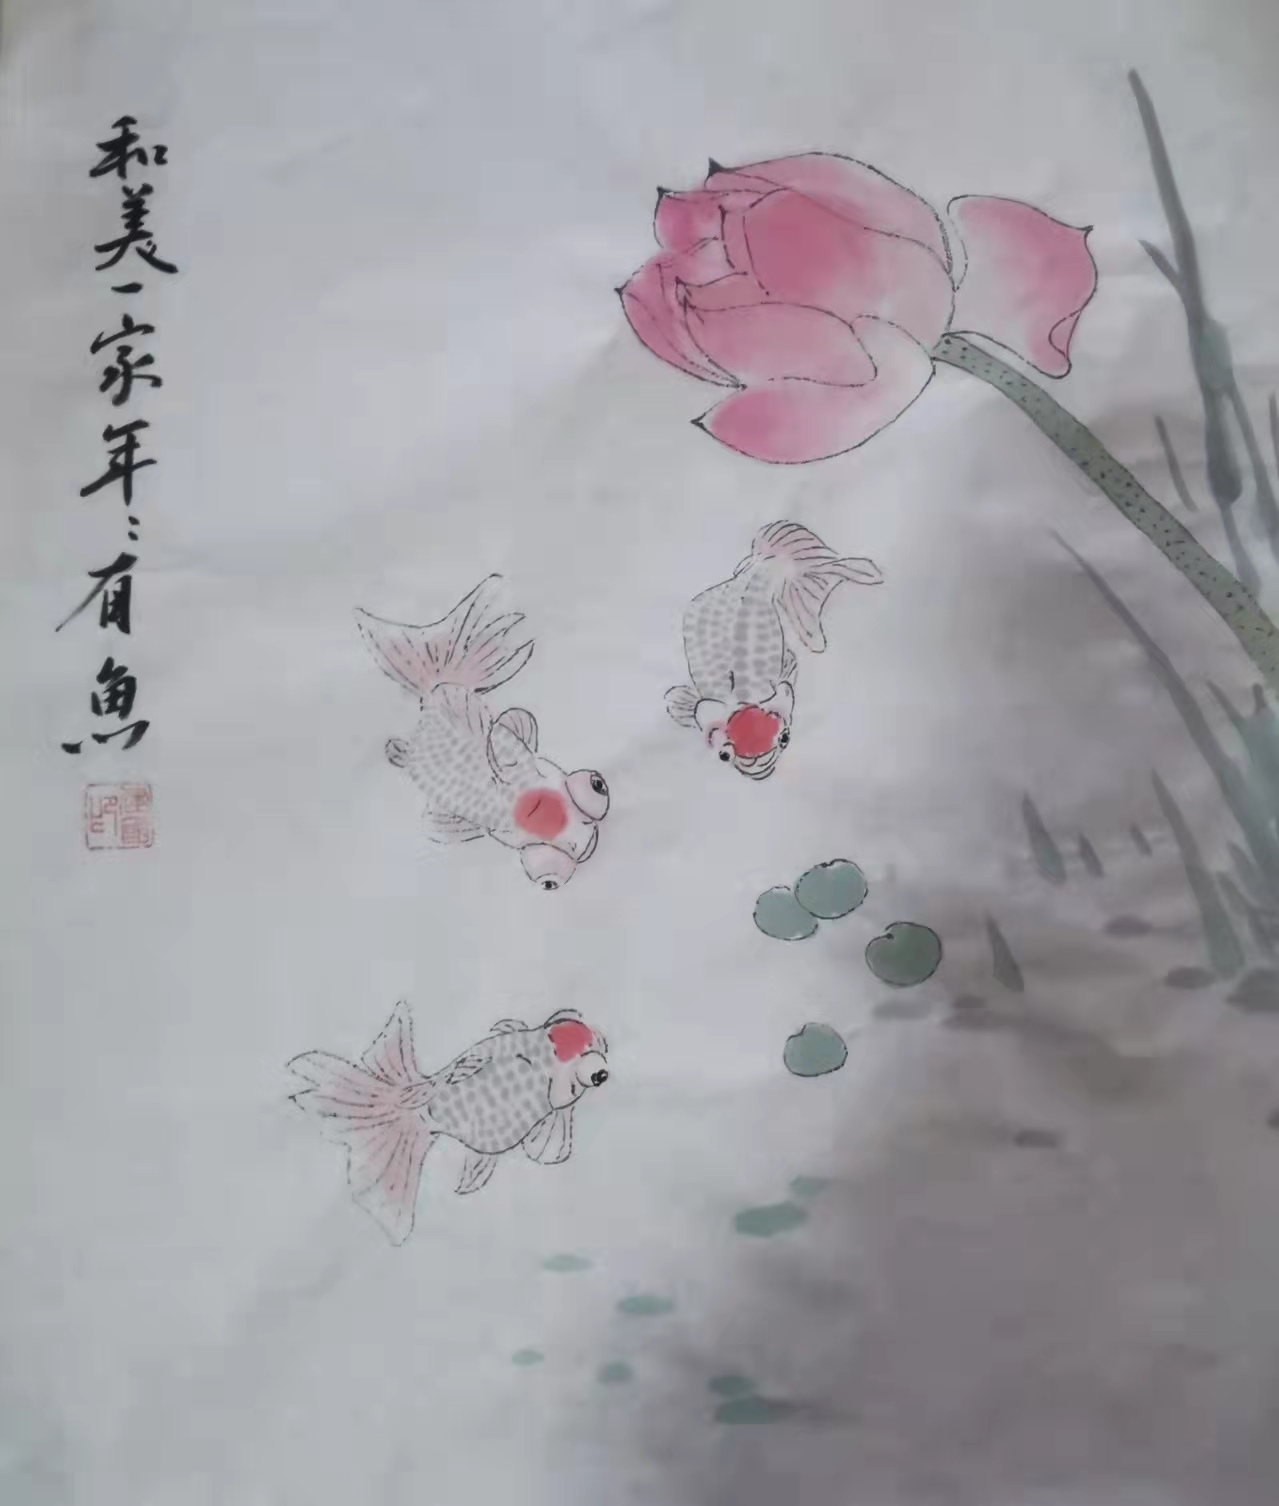 和美一家年〻有魚